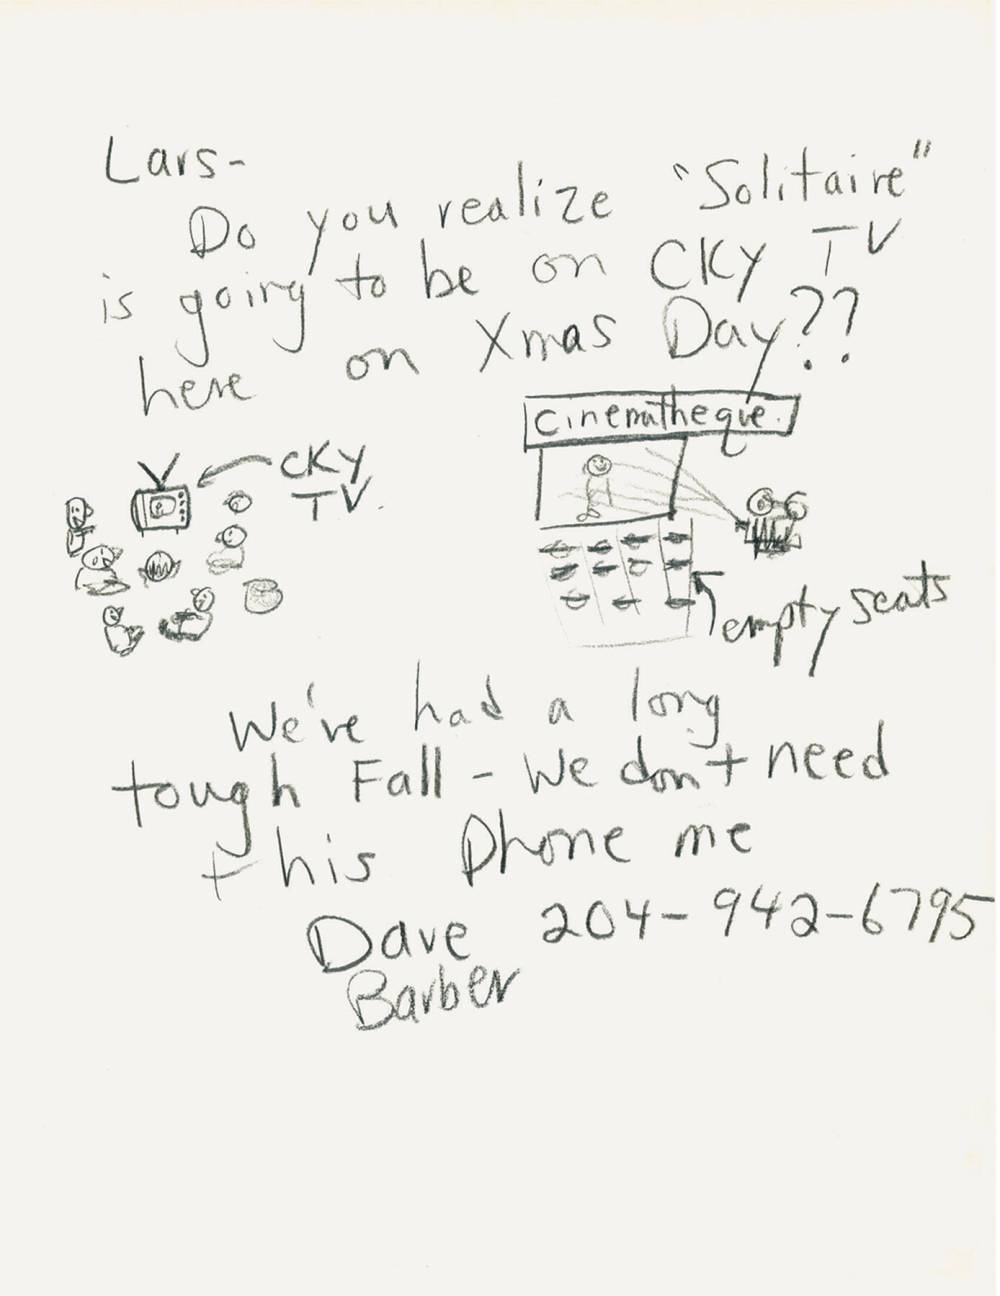 Lars-
Do you realize "Solitaire"
is going to be on CKY TV
here on Xmas Day??
Cinematheque.
CKY
TV.
empty seats
We've had a long
tough Fall - We don't need
this Phone me
Dave 204-942-6795
Barber